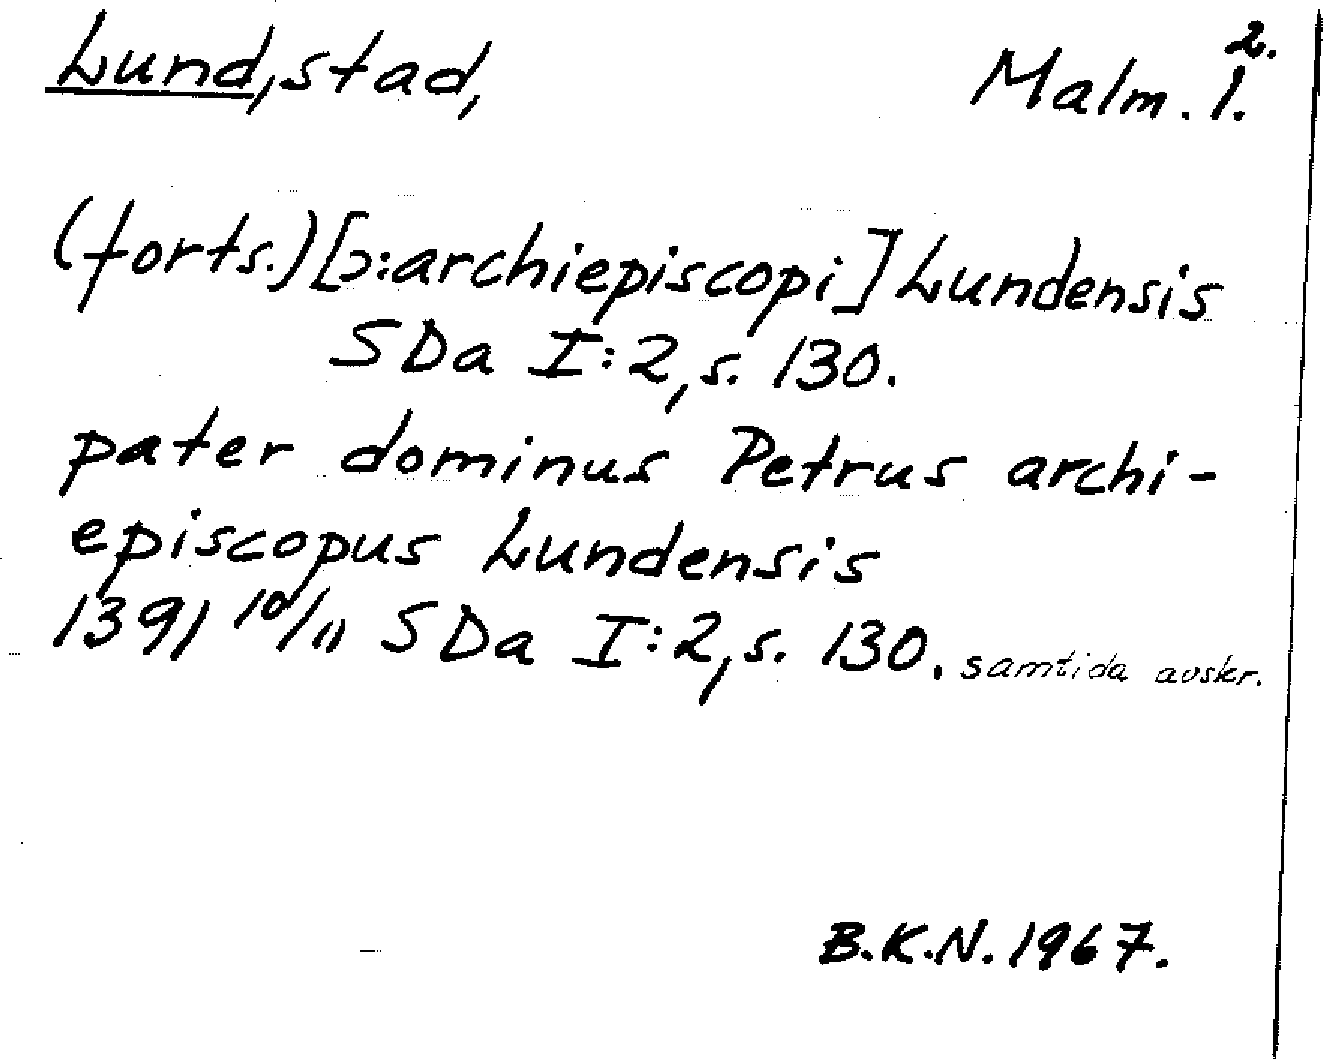 Lund, stad, Malm. 1. 2.
(forts.) [ɔ: archiepiscopi] Lundensis
SDa I:2, s. 130.
pater dominus Petrus archi-
episcopus Lundensis
1391 10/11 SDa I:2, s. 130. samtida avskr.
B.K.N. 1967.